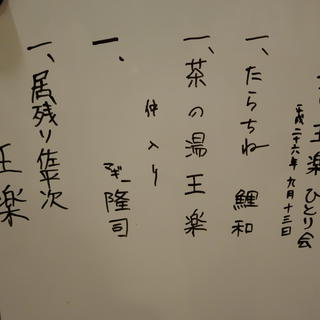 王楽ひとり会
平成二十六年九月十三日
一、たらちね 鯉和
一、茶の湯 王楽
仲入り
一、マギー隆司
一、居残り佐平次
王楽